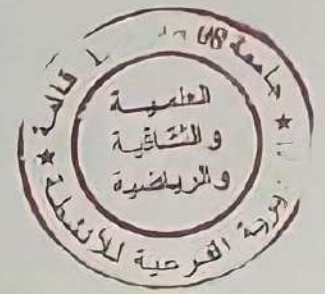 جامعة 08 قالمة
العلمية
و الثقافية
والرياضية
الفرعية للأنشطة